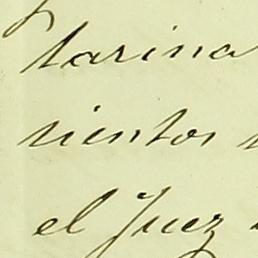 tarina
cientos
el Juez